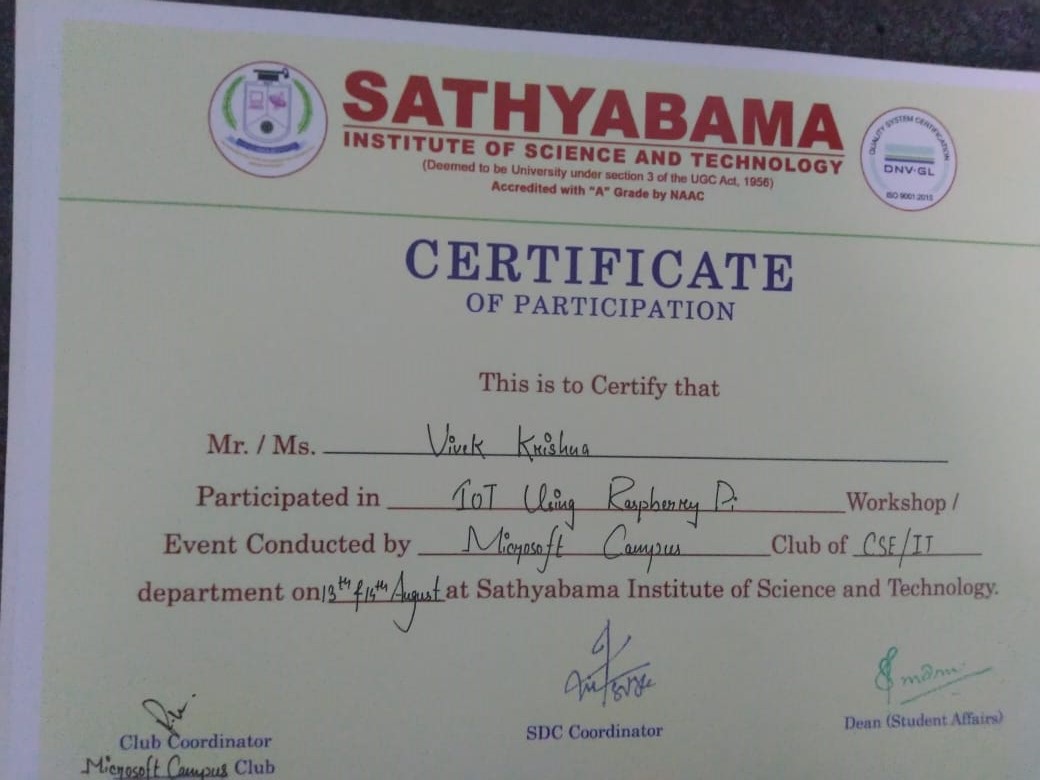 SATHYABAMA
INSTITUTE OF SCIENCE AND TECHNOLOGY
(Deemed to be University under section 3 of the UGC Act, 1956)
Accredited with "A" Grade by NAAC
QUALITY SYSTEM CERTIFICATION
DNV·GL
ISO 9001:2015
CERTIFICATE
OF PARTICIPATION
This is to Certify that
Mr. / Ms. Vivek Krishna
Participated in IoT Using Raspberry Pi Workshop /
Event Conducted by Microsoft Campus Club of CSE/IT
department on 13th & 14th August at Sathyabama Institute of Science and Technology.
Club Coordinator
Microsoft Campus Club
SDC Coordinator
Dean (Student Affairs)